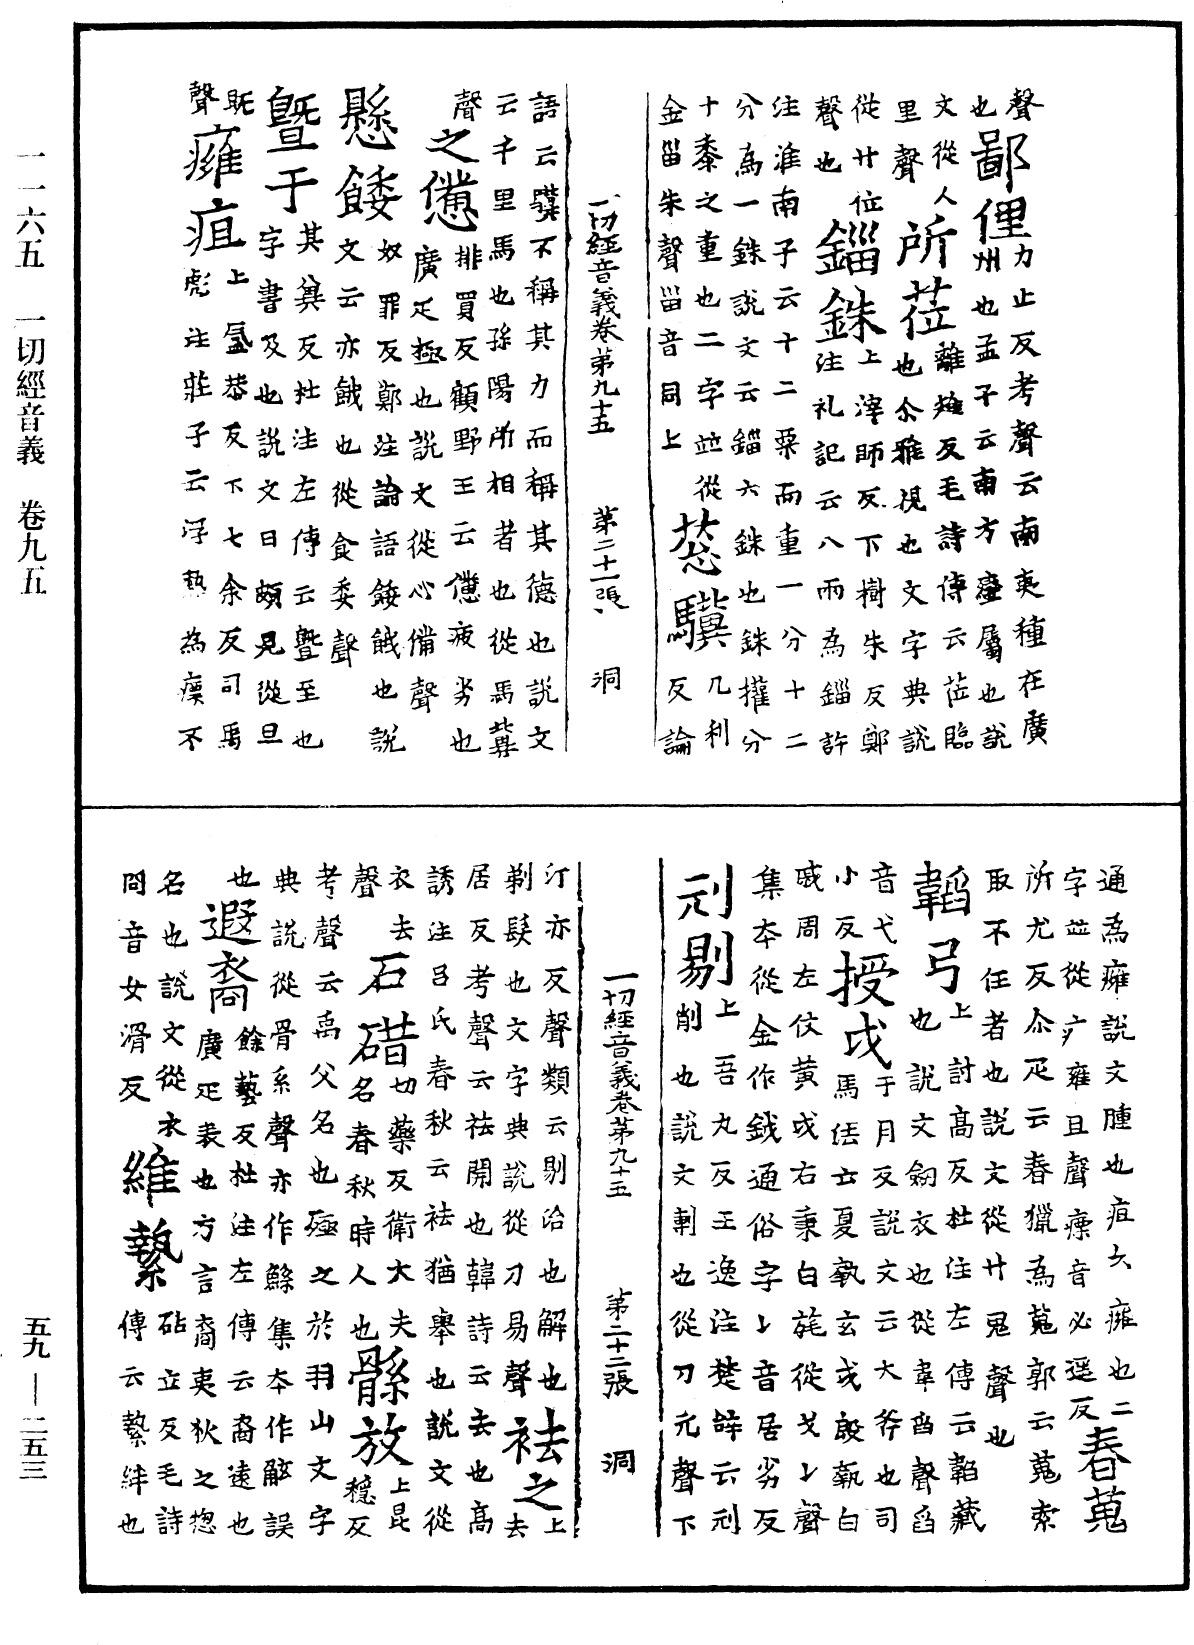 一一六五 一切經音義 卷九五
聲
也鄙俚力止反考聲云南夷種在廣
州也孟子云南方蠻屬也說
文從人
里聲所莅離雉反毛詩傳云莅臨
也尒雅視也文字典說
從廾位
聲也錙銖上滓師反下樹朱反鄭
注礼記云八兩為錙許
注淮南子云十二粟而重一分十二
分為一銖說文云錙六銖也銖權分
十黍之重也二字並從
金甾朱聲甾音同上䒾驥几利
反論
一切經音義卷第九十五 第二十一張 洞
語云驥不稱其力而稱其德也說文
云千里馬也孫陽所相者也從馬冀
聲之憊排買反顧野王云憊疲劣也
廣疋極也說文從心備聲
懸餧奴罪反鄭注論語餧餓也說
文云亦餓也從食委聲
曁于其兾反杜注左傳云曁至也
字書及也說文日頗見從旦
旣
聲癰疽上邕恭反下七余反司馬
彪注莊子云浮熱為瘭不
通為癰說文腫也疽亦癰也二
字並從疒雍且聲瘭音必遥反春蒐
所尤反尒疋云春獵為蒐郭云蒐索
取不任者也說文從廾鬼聲也
韜弓上討高反杜注左傳云韜藏
也說文劒衣也從韋舀聲舀
音弋
小反授戉于月反說文云大斧也司
馬法云夏執玄戉殷執白
戚周左仗黃戉右秉白旄從戈乚聲
集本從金作鉞通俗字乚音居劣反
刓剔上吾丸反王逸注楚辞云刓
削也說文剸也從刀元聲下
一切經音義卷第九十五 第二十二張 洞
汀亦反聲類云剔治也解也
剃髮也文字典說從刀易聲祛之上
去
居反考聲云祛開也韓詩云去也高
誘注呂氏春秋云祛猶舉也說文從
衣去
聲石碏切藥反衛大夫
名春秋時人也鯀放上昆
穩反
考聲云禹父名也殛之於羽山文字
典說從骨系聲亦作鯀集本作骸誤
也遐裔餘藝反杜注左傳云裔遠也
廣疋表也方言裔夷狄之揔
名也說文從衣
㕯音女滑反維縶砧立反毛詩
傳云縶絆也
五九—二五三